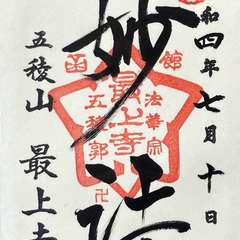 和四年七月十日
妙法
五稜山
最上寺
函館
最上寺
法華宗
五稜郭
卍